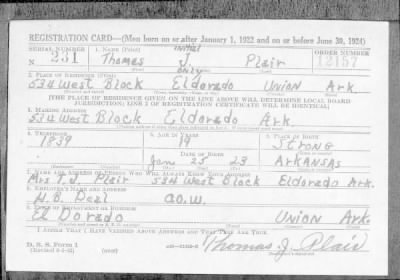 REGISTRATION CARD—(Men born on or after January 1, 1922 and on or before June 30, 1924)
SERIAL NUMBER 1. NAME (Print) initial ORDER NUMBER
N 231 Thomas J. Plair 12157
only
2. PLACE OF RESIDENCE (Print)
534 West Block Eldorado Union Ark.
[THE PLACE OF RESIDENCE GIVEN ON THE LINE ABOVE WILL DETERMINE LOCAL BOARD
JURISDICTION; LINE 2 OF REGISTRATION CERTIFICATE WILL BE IDENTICAL]
3. MAILING ADDRESS
534 West Block Eldorado Ark
4. TELEPHONE 5. AGE IN YEARS 6. PLACE OF BIRTH
1839 19 Strong
Jan 25 23 Arkansas
7. NAME AND ADDRESS OF PERSON WHO WILL ALWAYS KNOW YOUR ADDRESS
Mrs T.J. Plair 534 West Block Eldorado Ark.
8. EMPLOYER'S NAME AND ADDRESS
H.B. Deal
9. PLACE OF EMPLOYMENT OR BUSINESS
El Dorado Union Ark.
I AFFIRM THAT I HAVE VERIFIED ABOVE ANSWERS AND THAT THEY ARE TRUE.
D. S. S. Form 1
Thomas J. Plair